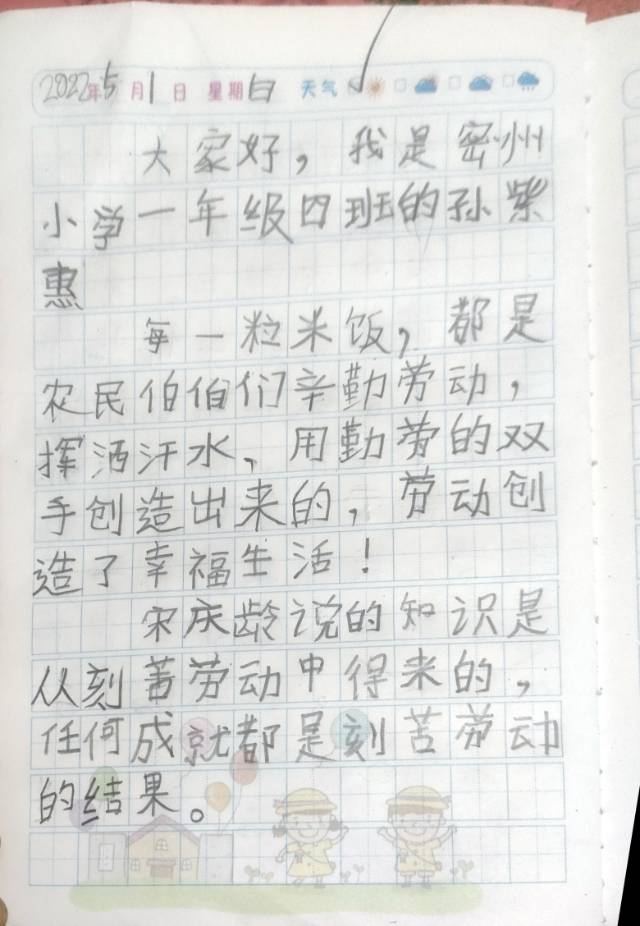 2022年5月1日 星期日 天气
大家好，我是密州
小学一年级四班的孙紫
惠
每一粒米饭，都是
农民伯伯们辛勤劳动，
挥洒汗水、用勤劳的双
手创造出来的，劳动创
造了幸福生活！
宋庆龄说的知识是
从刻苦劳动中得来的，
任何成就都是刻苦劳动
的结果。